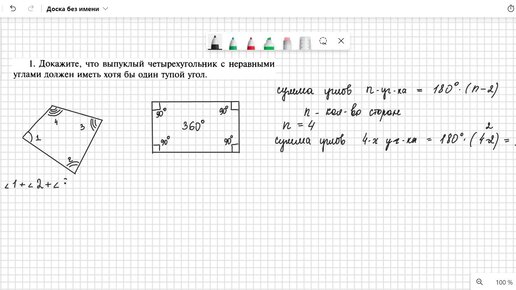 Доска без имени
1. Докажите, что выпуклый четырехугольник с неравными
углами должен иметь хотя бы один тупой угол.
сумма углов n-уг-ка = 180° · (n-2)
n - кол-во сторон
n = 4
2
сумма углов 4-х уг-ка = 180° · (4-2) =
4
3
1
2
90° 90°
360°
90° 90°
∠1 + ∠2 + ∠
100 %